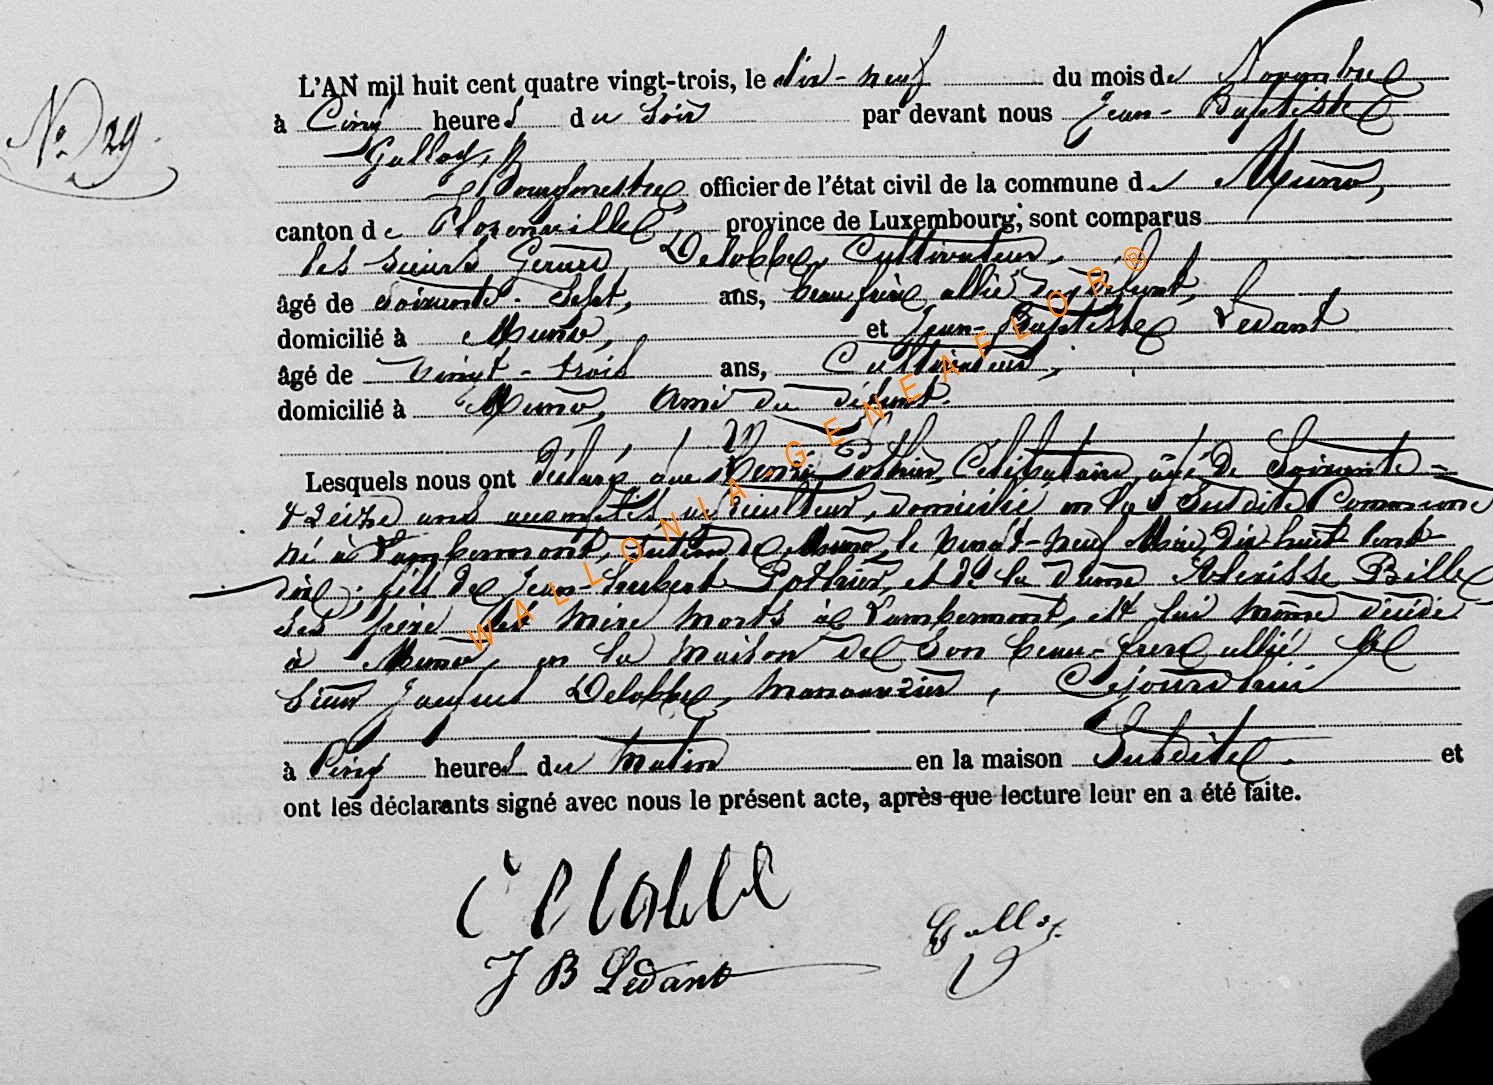 N° 29.
L'AN mil huit cent quatre vingt-trois, le dix-neuf du mois de Novembre
à Cinq heures du Soir par devant nous Jean-Baptiste
Galloy,
Bourgmestre, officier de l'état civil de la commune de Muno,
canton de Florenville, province de Luxembourg, sont comparus
les sieurs Gérard Delobbe, Cultivateur,
âgé de soixante-sept, ans, beau frère allié du défunt,
domicilié à Muno, et Jean-Baptiste Ledant
âgé de vingt-trois ans, Cultivateur,
domicilié à Muno, ami du défunt.
Lesquels nous ont déclaré que Henri Pothier, Célibataire, âgé de Soixante-
treize ans, domicilié en la Susdite Commune
né à Lambermont, section de Muno, le vingt-neuf dix huit cent
dix, fils de Jean-Hubert Pothier, et de la dame Bille
ses père et mère morts à Lambermont, et lui même décédé
à Muno, en la maison de son beau-frère allié le
Sieur Jacques Delobbe, manouvrier, Cejourd'hui
à Cinq heures du Matin en la maison Susdite. et
ont les déclarants signé avec nous le présent acte, après que lecture leur en a été faite.
Delobbe
J B Ledant
Galloy
WALLONIA-GENEAFLOR®